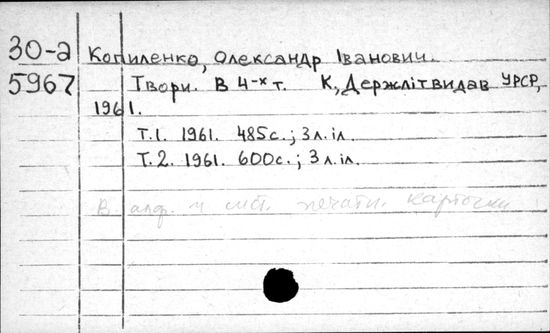 30-а
5967
Копиленко, Олександр Іванович.
Твори. В 4-х т. К, Держлітвидав УРСР,
1961.
Т.1. 1961. 485с.; 3л.іл.
Т.2. 1961. 600с.; 3л.іл.
В алф. и сист. печатн. карточки